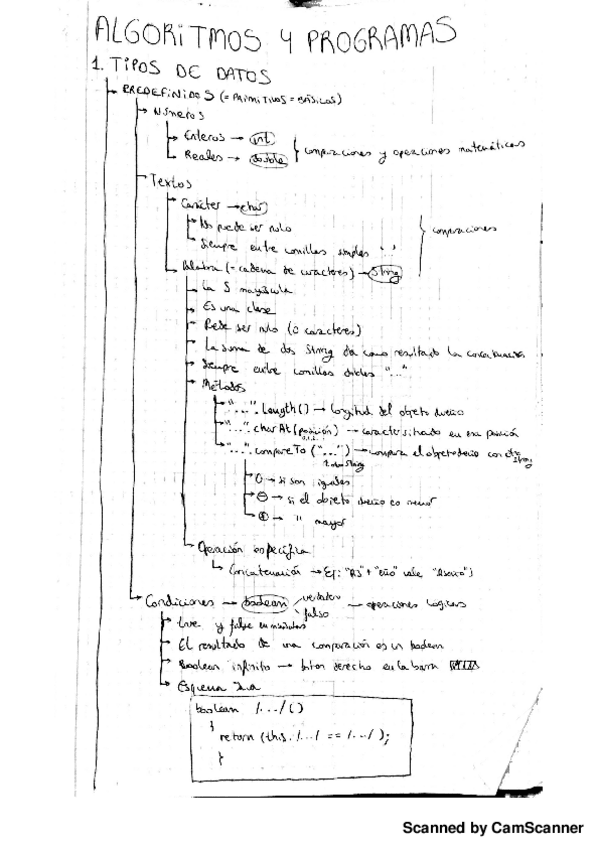 ALGORITMOS Y PROGRAMAS
1. TIPOS DE DATOS
PREDEFINIDOS (= PRIMITIVOS = BÁSICOS)
Números
Enteros → int
Reales → double
comparaciones y operaciones matemáticas
Textos
Carácter → char
No puede ser nulo
Siempre entre comillas simples ' '
comparaciones
Palabra (= cadena de caracteres) → String
La S mayúscula
Es una clase
Puede ser nulo (0 caracteres)
La suma de dos String da como resultado la concatenación
Siempre entre comillas dobles "..."
Métodos
"...".length() → longitud del objeto
"...".charAt(posición) → caracter situado en esa posición
0,1,2..
"...".compareTo("...") → compara el objeto con otro String
String
0 → si son iguales
⊖ → si el objeto es menor
⊕ → " mayor
Operación específica
Concatenación → Ej:
Condiciones → boolean verdadero falso → operaciones lógicas
true y false en minúsculas
El resultado de una comparación es un boolean
Boolean infinito → botón derecho en la barra
Esquema
boolean /.../ ()
{
return (this. /.../ == /.../ );
}
Scanned by CamScanner